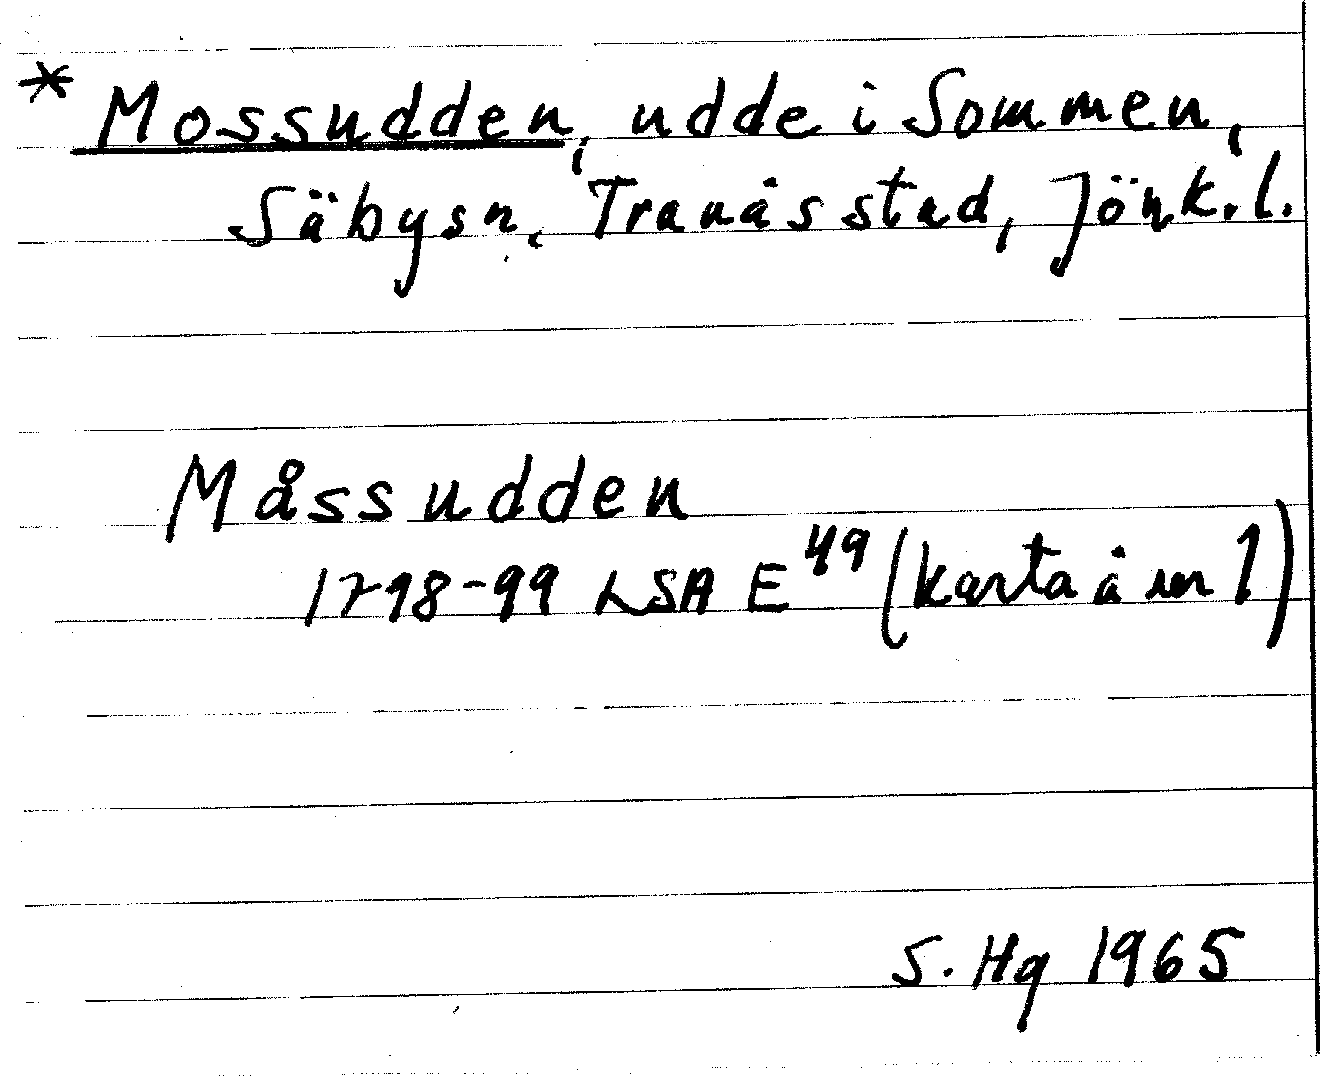 * Mossudden, udde i Sommen,
Säby sn, Tranås stad, Jönk. l.
Måssudden
1798-99 LSA E49 (karta å nr 1)
S. Hg 1965